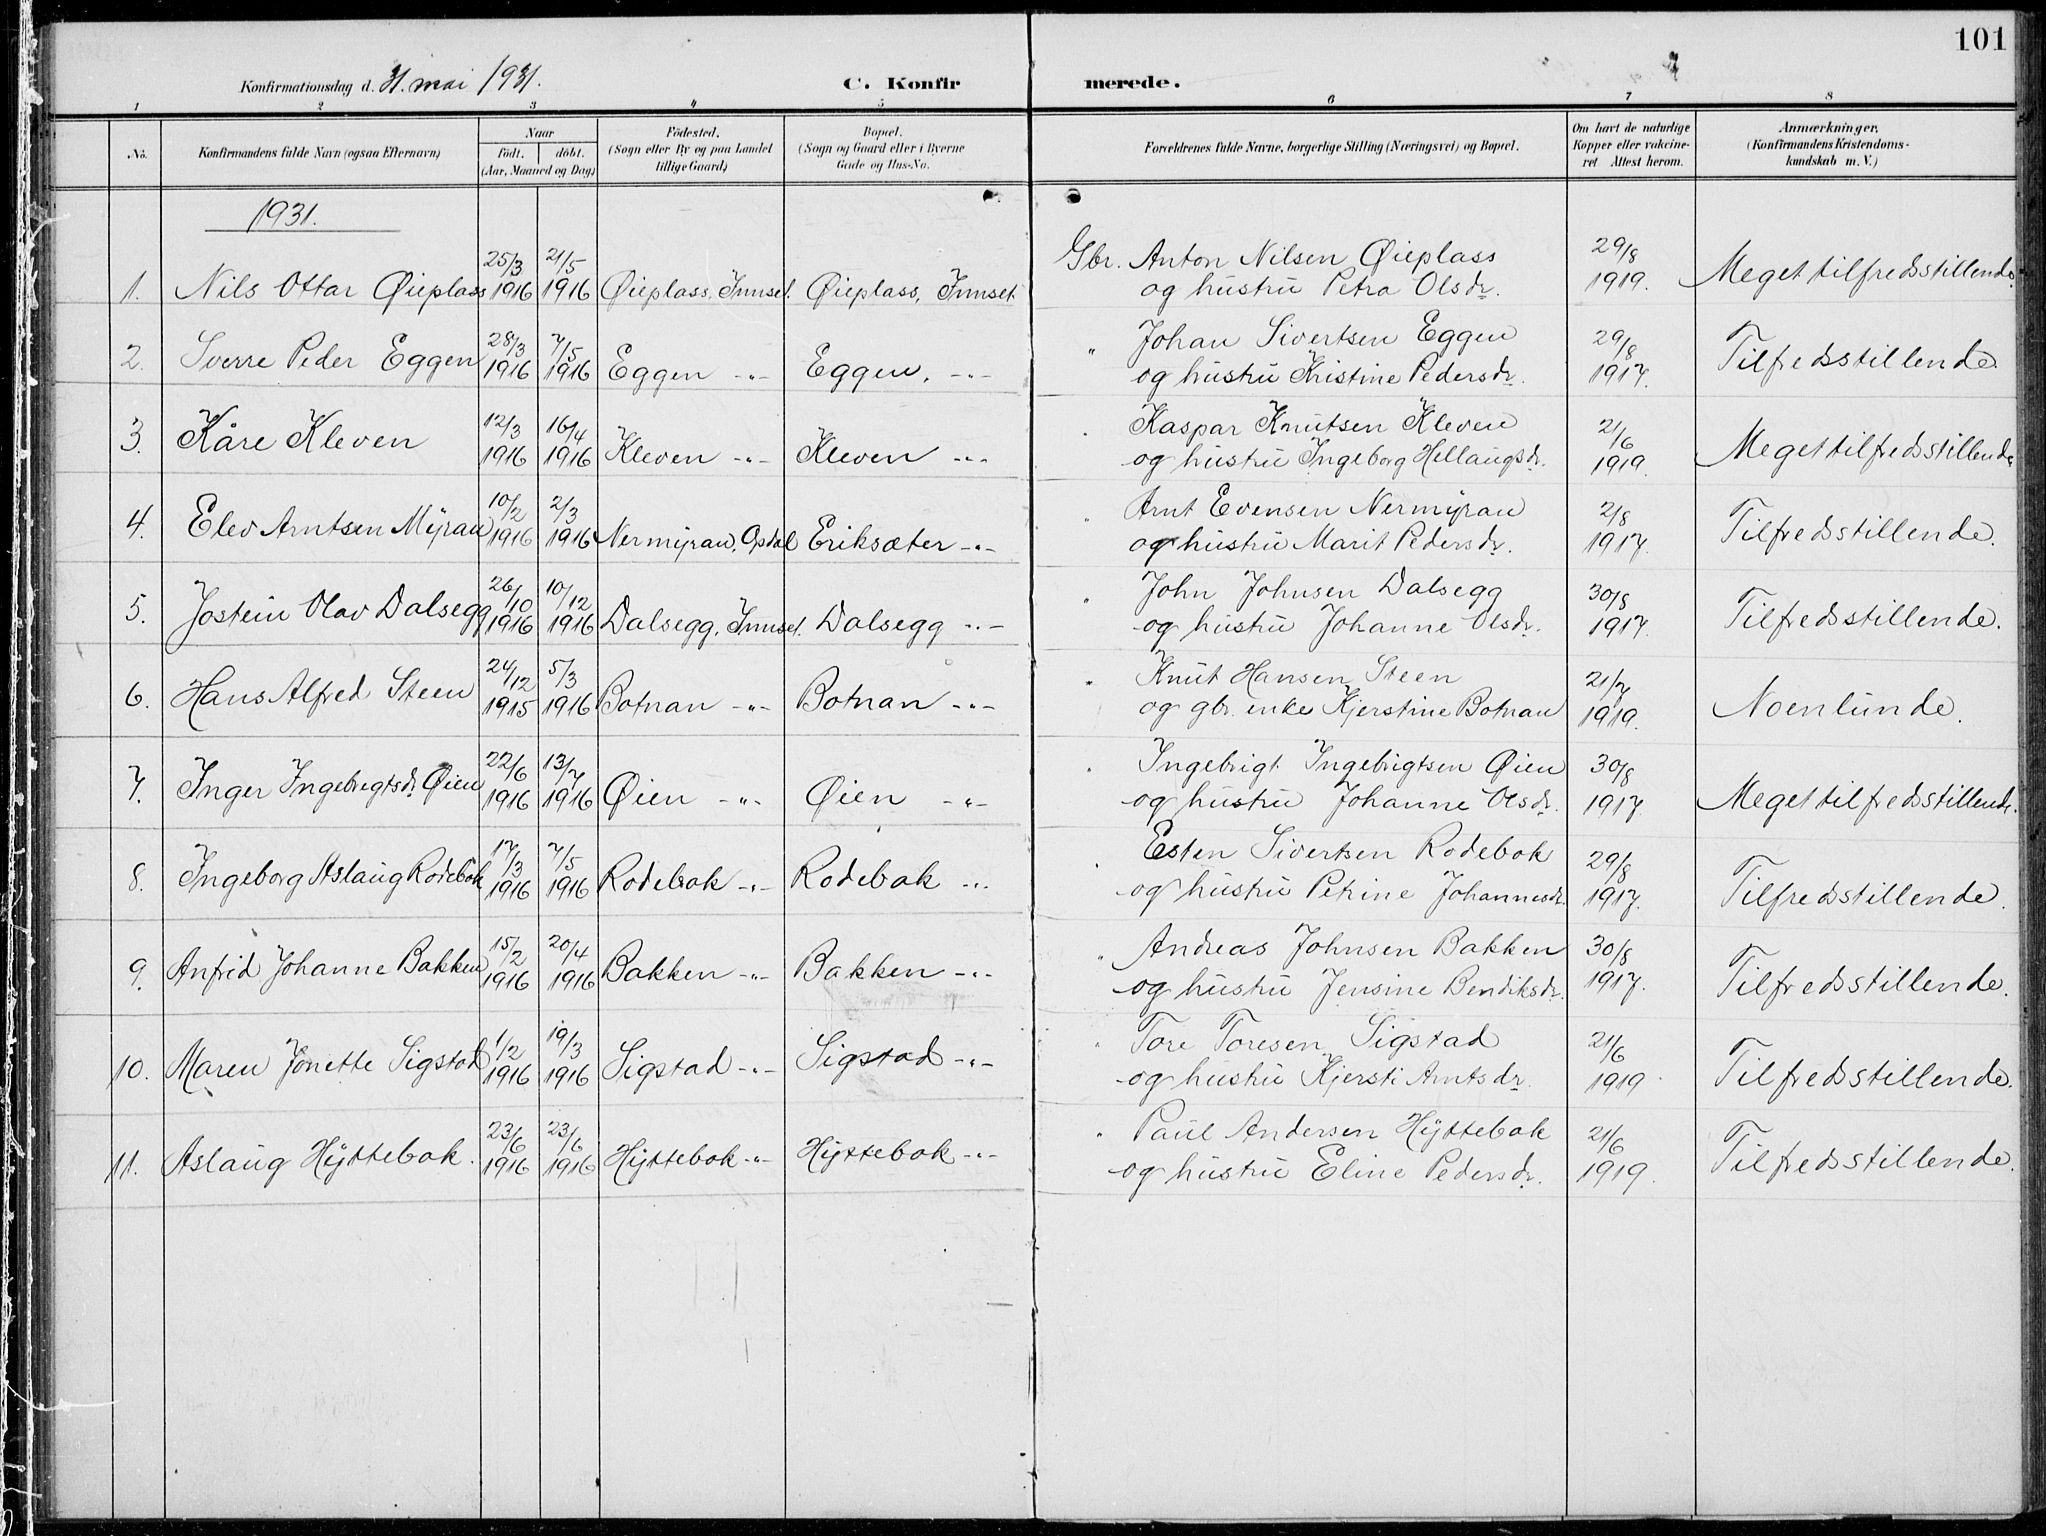 101
Konfirmationsdag d. 31. mai 1931. C. Konfirmerede.
1 2 3 4 5 6 7 8
No. Konfirmandens fulde Navn (ogsaa Efternavn) Naar födt. döbt. (Aar, Maaned og Dag) Födested. (Sogn eller By og paa Landet tillige Gaard) Bopæl. (Sogn og Gaard eller i Byerne Gade og Hus-No. Forældrenes fulde Navne, borgerlige Stilling (Næringsvei) og Bopæl. Om havt de naturlige Kopper eller vakcineret Attest herom. Anmærkninger. (Konfirmandens Kristendomskundskab m. V.)
1931.
1. Nils Ottar Øieplass 25/3 1916 21/5 1916 Øieplass, Innset. Øieplass, Innset. Gbr. Anton Nilsen Øieplass 29/8 1919. Meget tilfredsstillende.
og hustru Petra Olsdr.
2. Sverre Peder Eggen 28/3 1916 7/5 1916 Eggen -"- Eggen, -"- " Johan Sivertsen Eggen 29/8 1917. Tilfredsstillende.
og hustru Kristine Pedersdr.
3. Kåre Kleven 12/3 1916 16/4 1916 Kleven -"- Kleven -"- " Kaspar Knutsen Kleven 21/6 1919. Meget tilfredsstillende
og hustru Ingeborg Hellaugsdr.
4. Elev Arntsen Myran 10/2 1916 2/3 1916 Nermyran, Opdal Eriksæter -"- " Arnt Evensen Nermyran 2/8 1917. Tilfredsstillende.
og hustru Marit Pedersdr.
5. Jostein Olav Dalsegg 26/10 1916 10/12 1916 Dalsegg, Innset. Dalsegg -"- " John Johnsen Dalsegg 30/8 1917. Tilfredsstillende.
og hustru Johanne Olsdr.
6. Hans Alfred Steen 24/12 1915 5/3 1916 Botnan -"- Botnan -"- " Knut Hansen Steen 21/7 1919. Noenlunde.
og gbr. enke Kjerstine Botnan
7. Inger Ingebrigtsdr. Øien 22/6 1916 13/7 1916 Øien -"- Øien -"- " Ingebrigt Ingebrigtsen Øien 30/8 1917. Meget tilfredsstillende.
og hustru Johanne Olsdr.
8. Ingeborg Aslaug Rodebak 17/3 1916 7/5 1916 Rodebak -"- Rodebak -"- " Esten Sivertsen Rodebak 29/8 1917. Tilfredsstillende.
og hustru Petrine Johannesdr.
9. Anfrid Johanne Bakken 15/2 1916 20/4 1916 Bakken -"- Bakken -"- " Andreas Johnsen Bakken 30/8 1917. Tilfredsstillende.
og hustru Jensine Bendiksdr.
10. Maren Jonette Sigstad 1/2 1916 19/3 1916 Sigstad -"- Sigstad -"- " Tore Toresen Sigstad 21/6 1919. Tilfredsstillende.
og hustru Kjersti Arntsdr.
11. Aslaug Hyttebak. 23/6 1916 23/6 1916 Hyttebak -"- Hyttebak -"- " Paul Andersen Hyttebak 21/6 1919. Tilfredsstillende.
og hustru Eline Pedersdr.